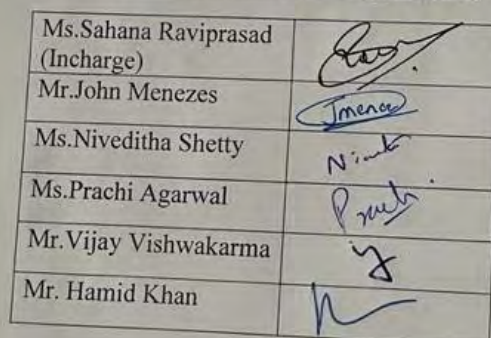 Ms.Sahana Raviprasad
(Incharge)
Mr.John Menezes
Jmenez
Ms.Niveditha Shetty
Ms.Prachi Agarwal
Mr.Vijay Vishwakarma
Mr. Hamid Khan